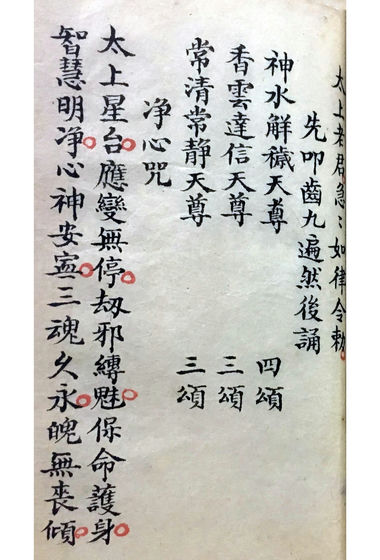 太上老君急〻如律令勅
先叩齒九遍然後誦
神水解穢天尊 四頌
香雲達信天尊 三頌
常清常静天尊 三頌
净心咒
太上星台。應變無停。刼邪縛魅。保命護身。
智慧明净。心神安寍。三魂久永。魄無喪傾。